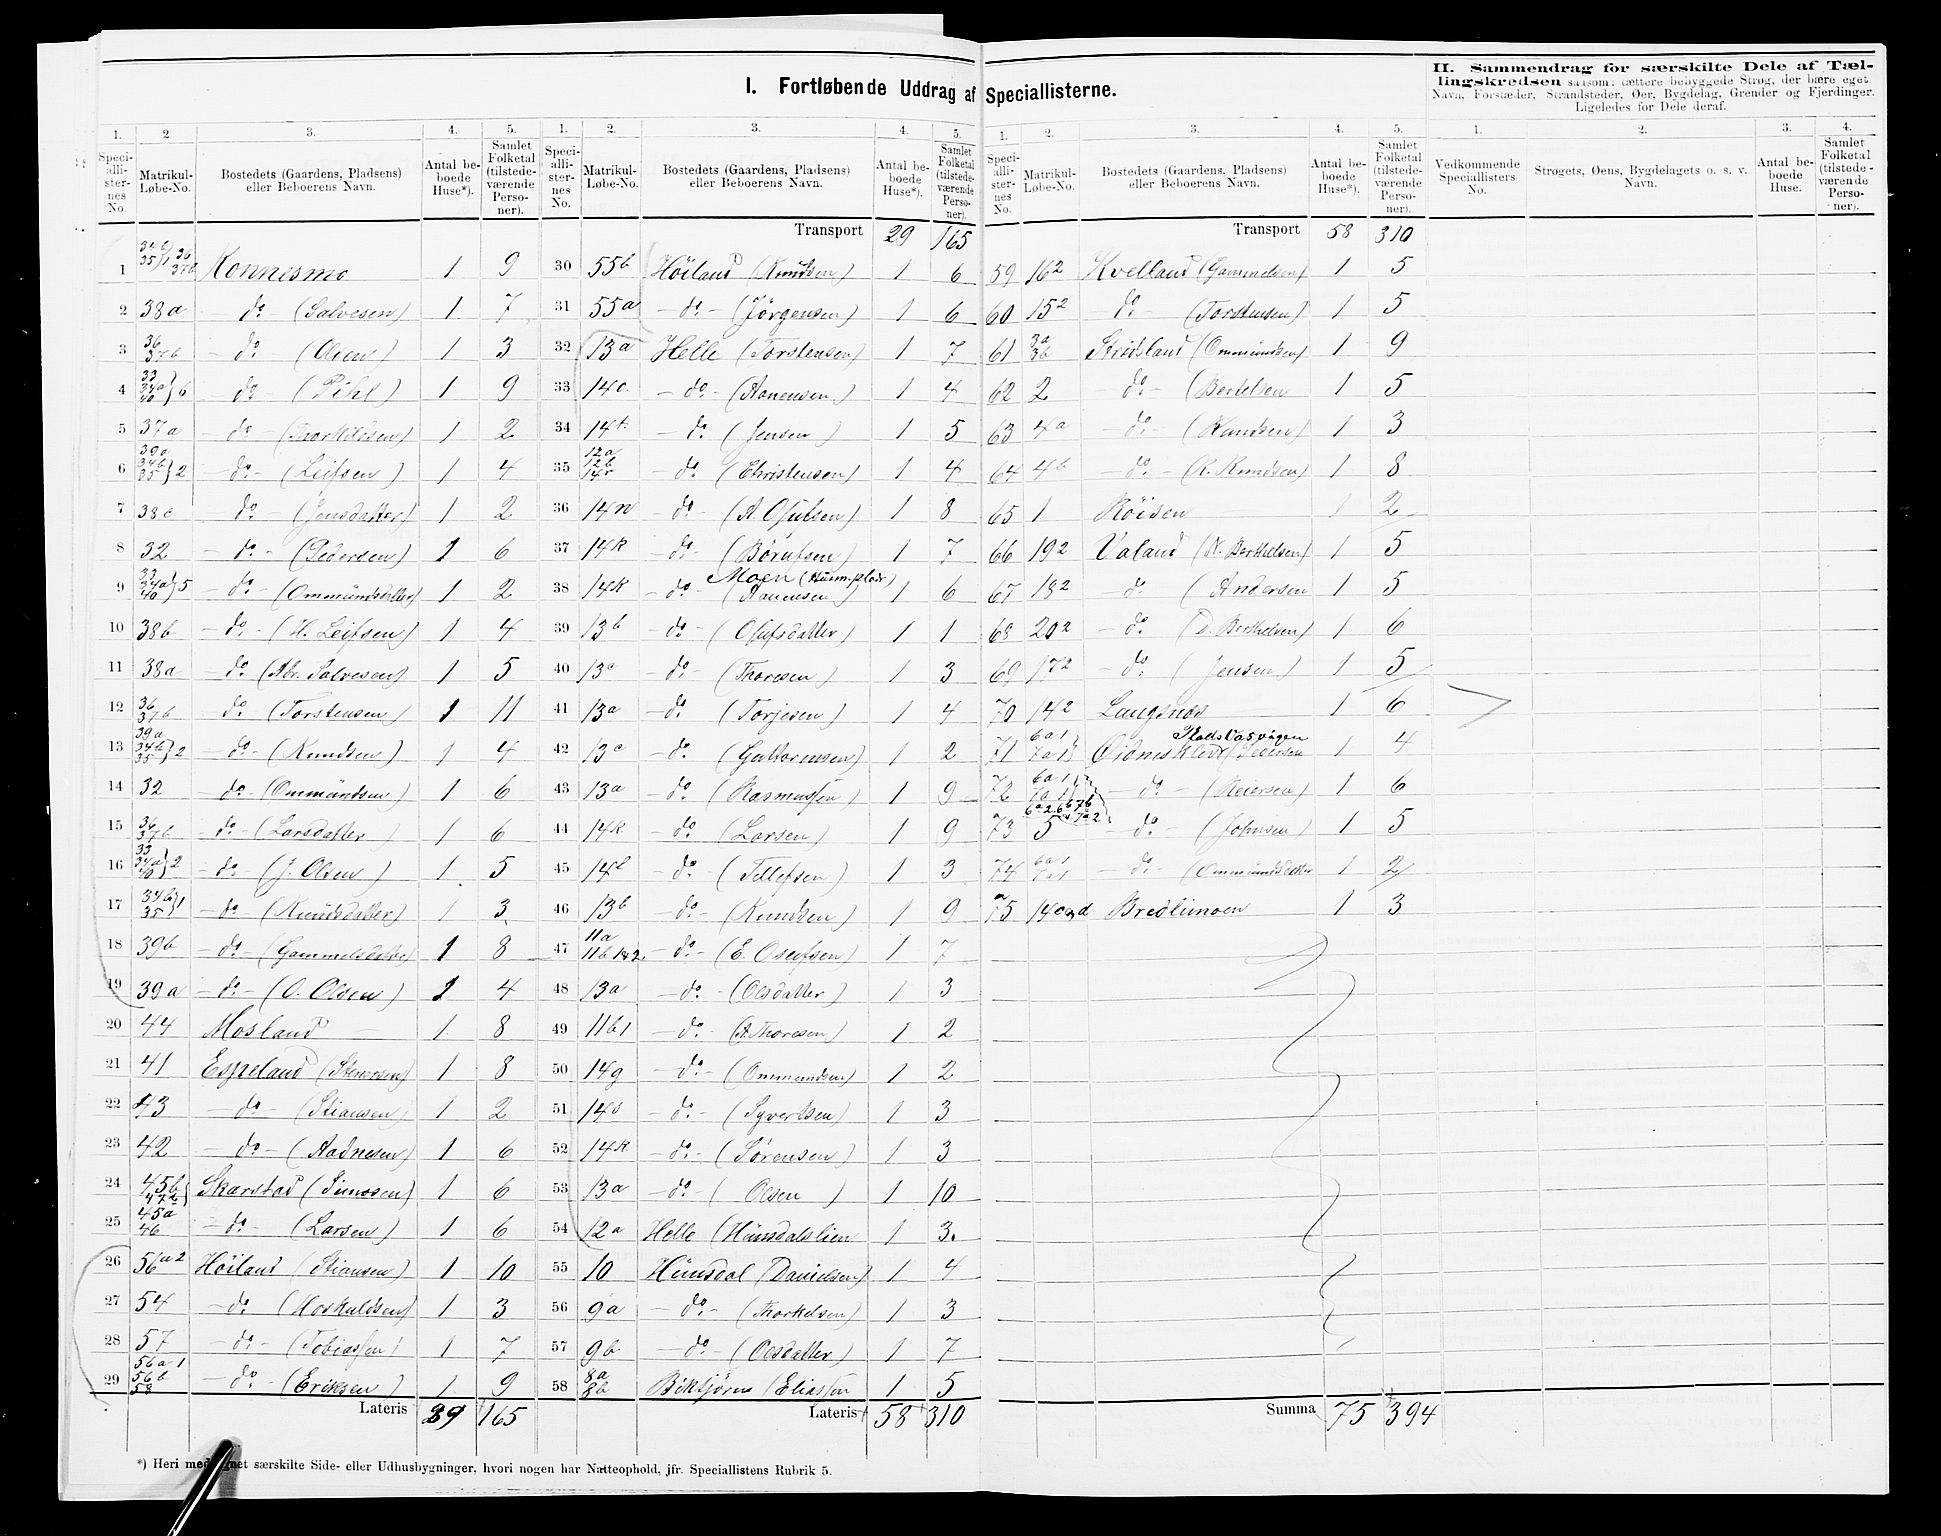 I. Fortløbende Uddrag af Speciallisterne.
II. Sammendrag for særskilte Dele af Tæl-
lingskredsen saasom: tættere bebyggede Strøg, der bære eget
Navn, Forstæder, Strandsteder, Øer, Bygdelag, Grender og Fjerdinger.
Ligeledes for Dele deraf.
1. 2 3. 4. 5. 1. 2. 3. 4. 5. 1. 2. 3. 4. 5. 1. 2. 3. 4.
Speci-alli-ster-nes No. Matrikul-Løbe-No. Bostedets (Gaardens, Pladsens) eller Beboerens Navn. Antal be-boede Huse*). Samlet Folketal (tilstede-værende Perso-ner).
Speci-alli-ster-nes No. Matrikul-Løbe-No. Bostedets (Gaardens, Pladsens) eller Beboerens Navn. Antal be-boede Huse*). Samlet Folketal (tilstede-værende Perso-ner).
Speci-alli-ster-nes No. Matrikul-Løbe-No. Bostedets (Gaardens, Pladsens) eller Beboerens Navn. Antal be-boede Huse*). Samlet Folketal (tilstede-værende Perso-ner).
Vedkommende Speciallisters No. Strøgets, Øens, Bygdelagets o. s. v. Navn. Antal be-boede Huse. Samlet Folketal (tilstede-værende Perso-ner).
1 34b 35}1 36 37b Konnesmo 1 9
2 38a do (Salvesen) 1 7
3 36 37b do (Olsen) 1 3
4 33 34a 40}6 do (Pihl) 1 9
5 37a do (Thorkildsen) 1 2
6 39a 34b 35}2 do (Leifsen) 1 4
7 38c do (Jensdatter) 1 2
8 32 do (Pedersen) 1 6
9 33 34a 40}5 do (Ommundsdatter) 1 2
10 38b do (H. Leifsen) 1 4
11 38a do (Abr. Salvesen) 1 5
12 36 37b do (Torstensen) 1 11
13 39a 34b 35}2 do (Knudsen) 1 4
14 32 do (Ommundsen) 1 6
15 36 37b do (Larsdatter 1 6
16 33 34a 40}2 do (J. Olsen) 1 5
17 34b 35}1 do (Knudsdatter) 1 3
18 39b do (Gammelsdatter) 1 8
19 39a do (O. Olsen) 1 4
20 44 Mosland 1 8
21 41 Espeland (Stenersen) 1 8
22 43 do (Stiansen) 1 2
23 42 do (Aadnesen) 1 6
24 45b 47b Skarstad (Simosen) 1 6
25 45a 46 do (Larsen) 1 6
26 56a2 Höiland (Stiansen) 1 10
27 54 do (Hoskuldsen) 1 3
28 57 do (Tobiassen) 1 7
29 56a1 56b 58 do (Eriksen) 1 9
Lateris 29 165
Transport 29 165
30 55b Höiland (Knudsen) 1 6
31 55a do (Jörgensen) 1 6
32 13a Helle (Torstensen) 1 7
33 14c do (Aanensen) 1 4
34 14t do (Jensen) 1 5
35 12a 12b 14r do (Christensen) 1 4
36 14n do (A. Osufsen) 1 8
37 14k do (Börufsen) 1 7
38 14k do Moen (Husm.plads) (Aanensen) 1 6
39 13b do (Osufsdatter) 1 1
40 13c do (Thoresen) 1 3
41 13a do (Torjesen) 1 4
42 13c do (Guttormsen) 1 2
43 13a do (Rasmussen) 1 9
44 14k do (Larsen) 1 9
45 14l do (Tellefsen) 1 3
46 13b do (Knudsen) 1 9
47 11a 11b 1&2 do (E. Osufsen) 1 7
48 13a do (Olsdatter) 1 3
49 11b1 do (A. Thoresen) 1 2
50 14g do (Ommundsen) 1 2
51 14s do (Syvertsen) 1 3
52 14k do (Sörensen) 1 3
53 13a do (Olsen) 1 10
54 12a Helle (Hunsdalslien 1 3
55 10 Hunsdal (Danielsen) 1 4
56 9a do (Thorkelsen) 1 3
57 9b do (Olsdatter) 1 7
58 8a 8b Bökstjörn (Eliassen 1 5
Lateris 58 310
Transport 58 310
59 16 2 Kvelland (Gammelsen) 1 5
60 15 2 do (Torstensen) 1 5
61 3a 3b Strödsland (Ommundsen) 1 9
62 2 do (Bertelsen 1 5
63 4a do (Knudsen) 1 3
64 4b do (R. Knudsen) 1 8
65 1 Röisen 1 2
66 19 2 Valand (N. Berthelsen) 1 5
67 18 2 do (Andersen 1 5
68 20 2 do (D. Berthelsen) 1 6
69 17 2 do (Jensen) 1 5
70 14 2 Langsnes 1 6
71 6a1 7a1 Pladsvaagen (Pedersen 1 4
72 6a1 7a1 do (Reiersen) 1 6
73 6a2 6b 7b 5 7a2 do (Johnsen) 1 5
74 6a1 7a1 do (Ommundsdatter 1 2
75 14 c og d Bredlimoen 1 3
Summa 75 394
*) Heri medregnet særskilte Side- eller Udhusbygninger, hvori nogen har Natteophold, jfr. Speciallistens Rubrik 5.